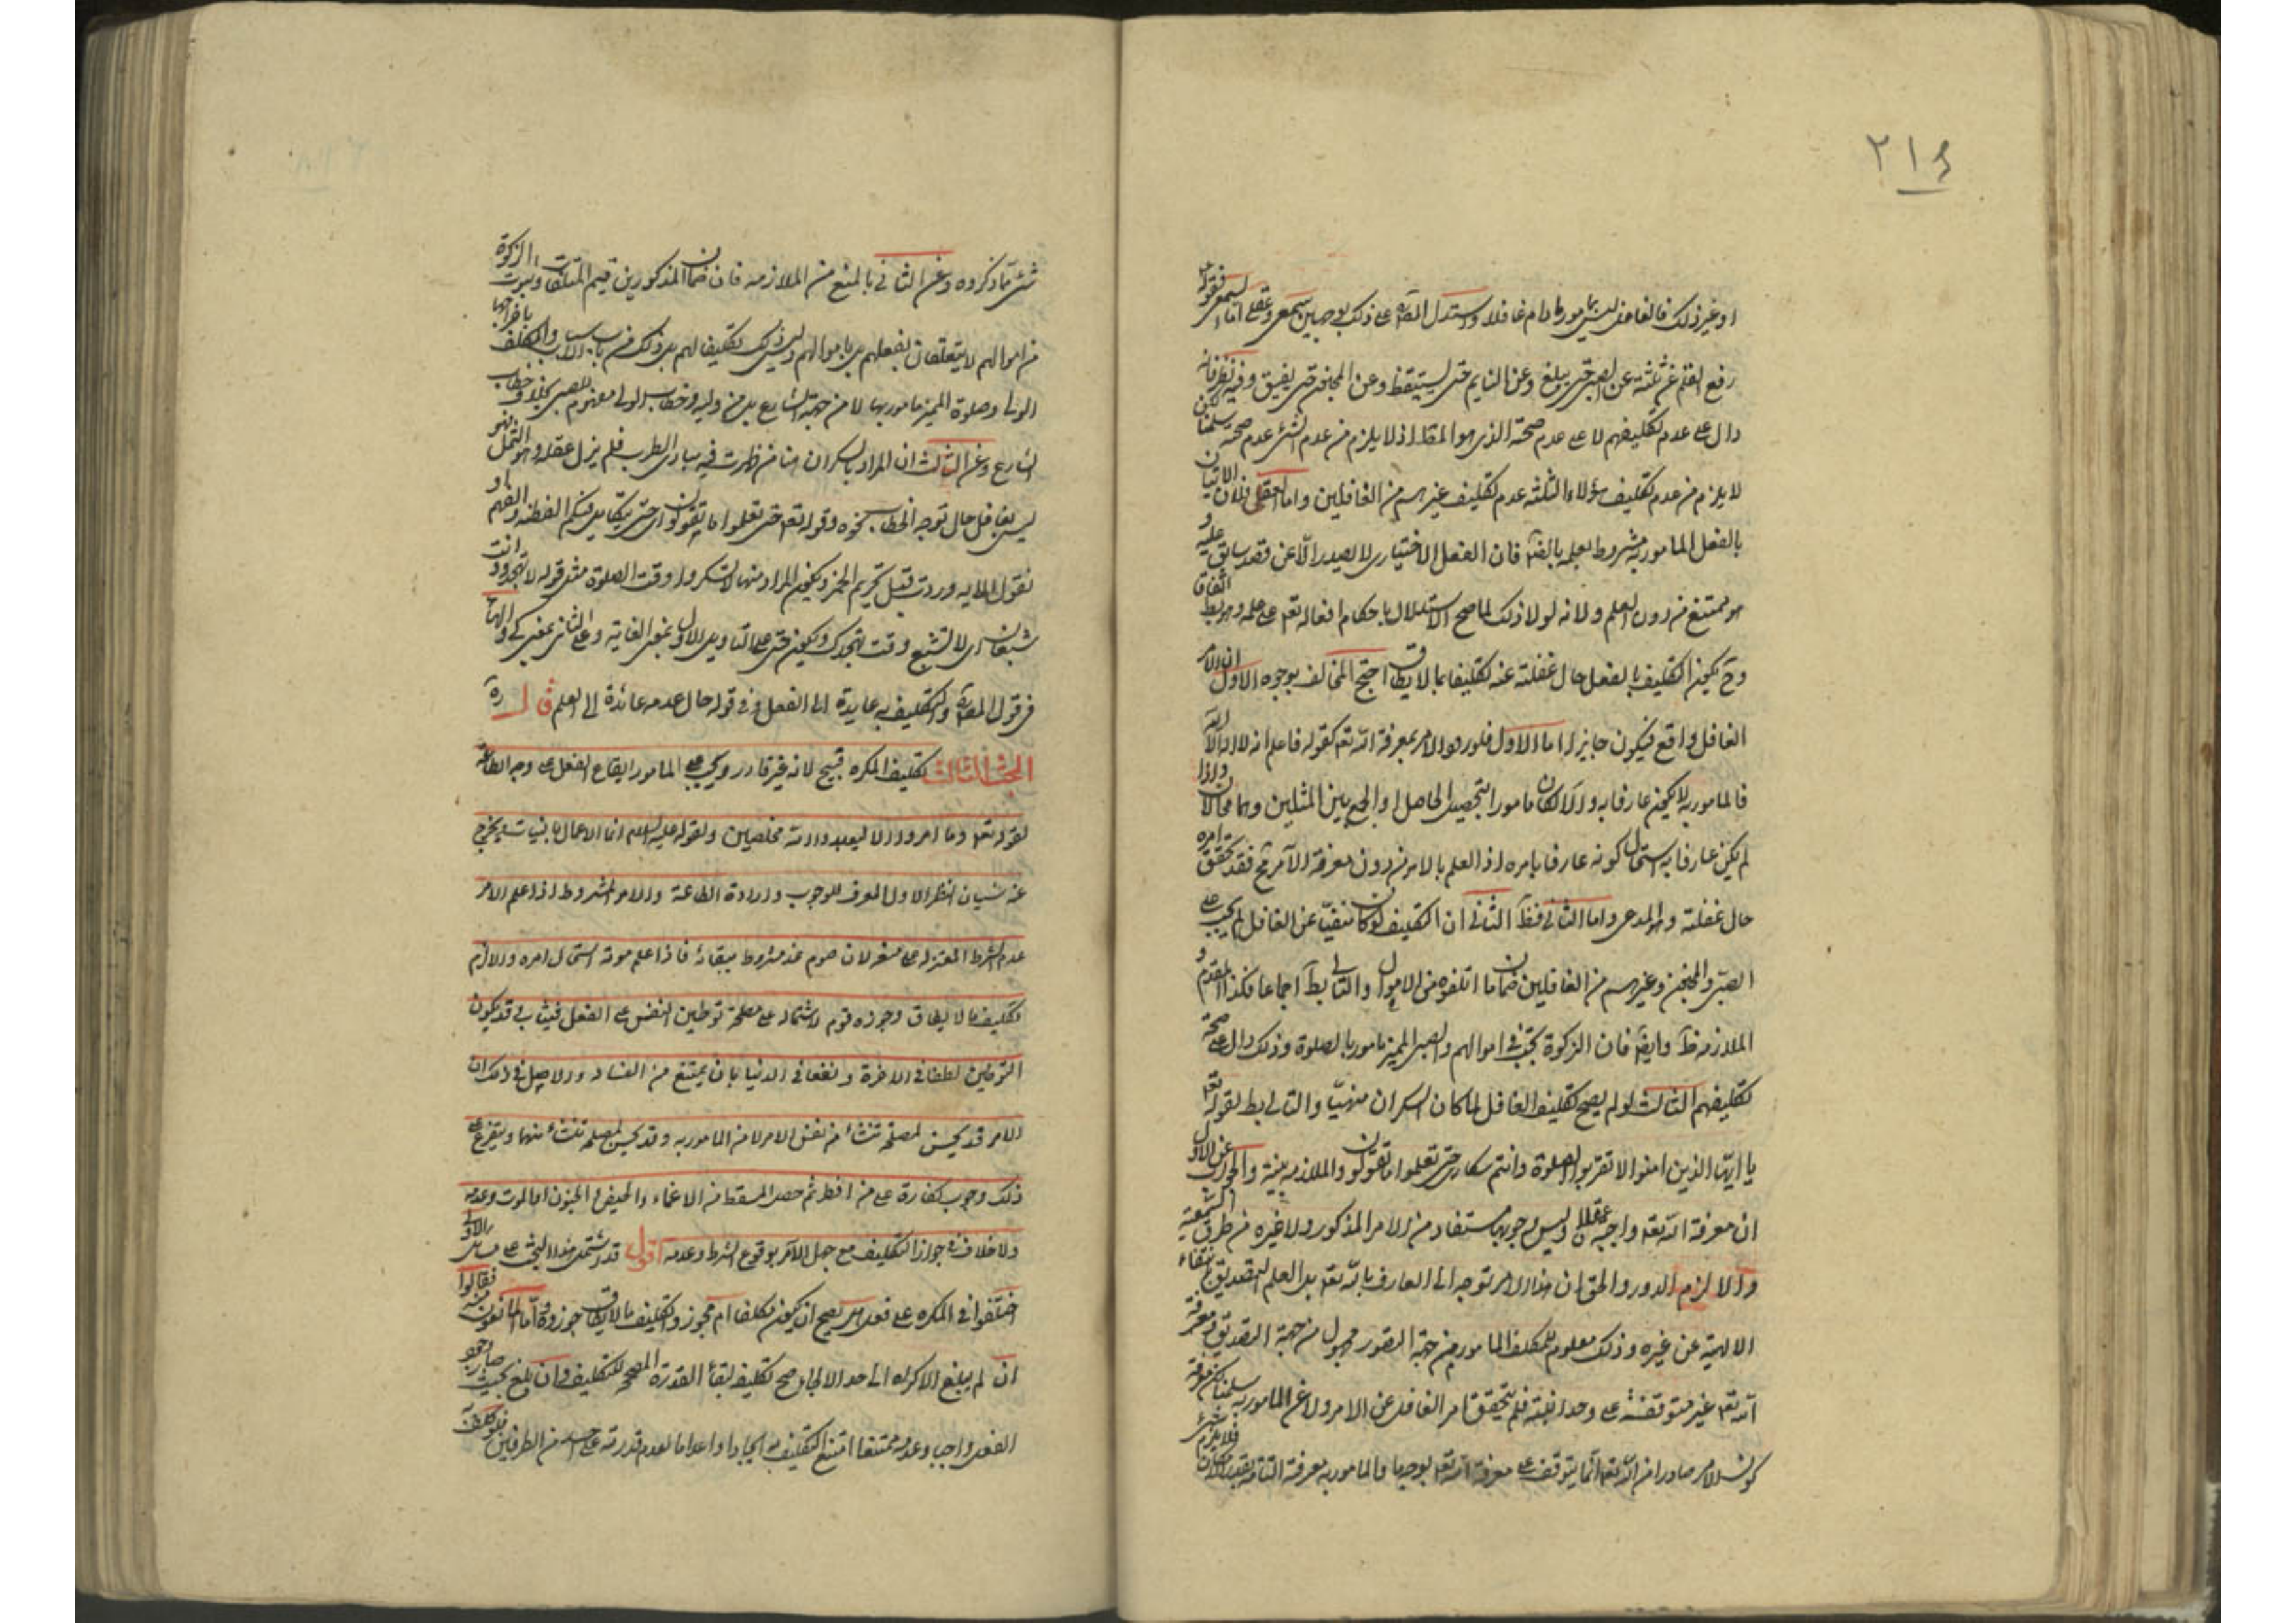 ٢١٤
او غير ذلك فالغافل ليس بمامور ما دام غافلا واستدل المصره على ذلك بوجهين سمعى وعقلى اما السمعى فقوله
رفع القلم عن ثلثة عن الصبى حتى يبلغ وعن النايم حتى يستيقظ وعن المجنون حتى يفيق وفيه نظر فانه
دال على عدم تكليفهم لا على عدم صحة الذى هو المقا اذ لا يلزم من عدم الشئ عدم صحته سلمنا لكن
لا يلزم من عدم تكليف هؤلاء الثلثة عدم تكليف غيرهم من الغافلين واما العقلى فلان الاتيان
بالفعل المامور به مشروط بعلمه بالفعل فان الفعل الاختيارى لا يصدر الا عن قصد سابق عليه و
هو ممتنع من دون العلم ولانه لولا ذلك لما صح الاستدلال باحكام افعاله تعه على علمه وهو بط اتفاقا
وح يكون التكليف بالفعل حال غفلته عنه تكليفا بما لا يطاق احتج المخالف بوجوه الاول ان الامر
الغافل واقع فيكون جايزا اما الاول فلورود الامر بمعرفة الله تعه كقوله فاعلم انه لا اله الا الله
فالمامور به لا يكون عارفا به والا لكان مامورا بتحصيل الحاصل او الجمع بين المثلين وهما محالان واذا
لم يكن عارفا به استحال كونه عارفا بامره اذ العلم بالامر من دون معرفة الآمر مح فقد تحقق امره
حال غفلته وهو المدعى واما الثانى فظ الثانى ان التكليف لو كان منفيا عن الغافل لم يجب على
الصبى والمجنون وغيرهم من الغافلين ضمان ما اتلفوه من الاموال والتالى بط اجماعا فكذا المقدم و
الملازمة ظ وايضا فان الزكوة تجب فى اموالهم والصبى المميز مامور بالصلوة وذلك دال على صحة
تكليفهم الثالث لو لم يصح تكليف الغافل لما كان السكران منهيا والتالى بط لقوله تعه
يا ايها الذين امنوا لا تقربوا الصلوة وانتم سكارى حتى تعلموا ما تقولون والملازمة بينة والجواب عن الاول
ان معرفة الله تعه واجبة عقلا وليس وجوبها مستفاد من الامر المذكور ولا غيره من طرق السمعية
والا لزم الدور والحق ان هذا الامر توجه الى العارف بالله تعه بل العلم التصديقى بانتفاء
الالهية عن غيره وذلك معلوم للمكلف المامور من جهة التصور مجهول من جهة التصديق ومعرفة
الله تعه غير متوقفة على وحدانيته فلم يتحقق امر الغافل عن الامر ولا عن المامور به سلمنا لكن معرفة
كون الامر صادرا من الله تعه انما يتوقف على معرفة الله تعه بوجه ما والمامور به معرفة التامة بقدر الامكان فلا يلزم شئ
شئ مما ذكروه وعن الثانى بالمنع من الملازمة فان ضمان المذكورين قيم المتلفات وثبوت الزكوة
من اموالهم لا يتعلقان بفعلهم بل باموالهم وليس ذلك تكليفا لهم بل ذلك من باب الاسباب والمكلف باخراجها
الولى وصلوة المميز مامور بها لا من جهة الشارع بل من وليه وخطاب الولى مفهوم للصبى بخلاف خطاب
الشارع وعن الثالث ان المراد بالسكران هنا من ظهرت فيه مبادى الطرب فلم يزل عقله وهو الثمل فهو
ليس بغافل حال توجه الخطاب نحوه وقوله تعه حتى تعلموا ما تقولون اى حتى يتكامل فيكم الفطنة والفهم او
نقول الاية وردت قبل تحريم الخمر ويكون المراد منها لا تسكروا وقت الصلوة مثل قوله لا تتهجد وانت
شبعان اى لا تشبع وقت تهجدك ويكون حتى على التاويل الاول بمعنى الغاية وعلى الثانى بمعنى كى والهاء
فى قول المصره والتكليف به عايدة الى الفعل وفى قوله حال عدمه عائدة الى العلم قال ره
البحث الثالث تكليف المكره قبيح لانه غير قادر ويجب على المامور ايقاع الفعل على وجه الطاعة
لقوله تعه وما امروا الا ليعبدوا الله مخلصين ولقوله عليه السلام انما الاعمال بالنيات ويخرج
عنه شيان النظر الاول المعرف للوجوب وارادة الطاعة والامر المشروط اذا علم الامر
عدم الشرط المعتزلة على منعه لان صوم غد مشروط ببقائه فاذا علم موته استحال امره والا لزم
تكليف ما لا يطاق وجوزه قوم لاشتماله على مصلحة توطين النفس على الفعل فيثاب وقد يكون
التوطين لطفا فى الاخرة ونفعا فى الدنيا بان يمتنع من الفساد والاصل فى ذلك ان
الامر قد يحسن لمصلحة تنشاء من نفس الامر لا من المامور به وقد يحسن لمصلحة تنشاء منهما ويتفرع على
ذلك وجوب كفارة على من افطر ثم حصل المسقط من الاغماء والحيض او الجنون اما الموت وعدمه
ولا خلاف فى جواز التكليف مع جهل الآمر بوقوع الشرط وعدمه اقول قد اشتمل هذا البحث على مسائل الاولى
اختلفوا فى المكره على فعل هل يصح ان يكون مكلفا ام لا مجوزوا تكليف ما لا يطاق جوزوه واما المانعون منه فقالوا
ان لم يبلغ الاكراه الى حد الالجاء صح تكليفه لبقاء القدرة المصححة للتكليف وان بلغ بحيث صار
الفعل واجبا وعدمه ممتنعا امتنع التكليف به ايجادا واعداما لعدم قدرته على احد من الطرفين